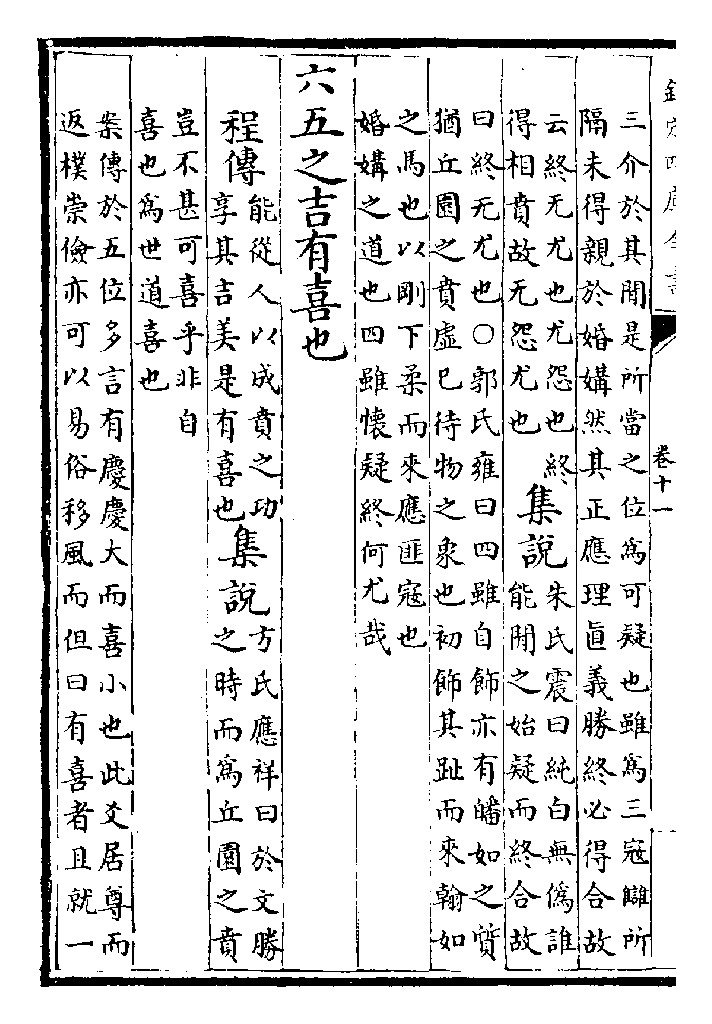 欽定四庫全書
卷十一
三介於其間是所當之位爲可疑也雖爲三寇讎所
隔未得親於婚媾然其正應理直義勝終必得合故
云終无尤也尤怨也終
得相賁故无怨尤也
集說
朱氏震曰純白無僞誰
能閒之始疑而終合故
曰終无尤也○郭氏雍曰四雖自飾亦有皤如之質
猶丘園之賁虛已待物之象也初飾其趾而來翰如
之馬也以剛下柔而來應匪寇也
婚媾之道也四雖懷疑終何尤哉
六五之吉有喜也
程傳
能從人以成賁之功
享其吉美是有喜也
集說
方氏應祥曰於文勝
之時而爲丘園之賁
豈不甚可喜乎非自
喜也爲世道喜也
案傳於五位多言有慶慶大而喜小也此爻居尊而
返樸崇儉亦可以易俗移風而但曰有喜者且就一